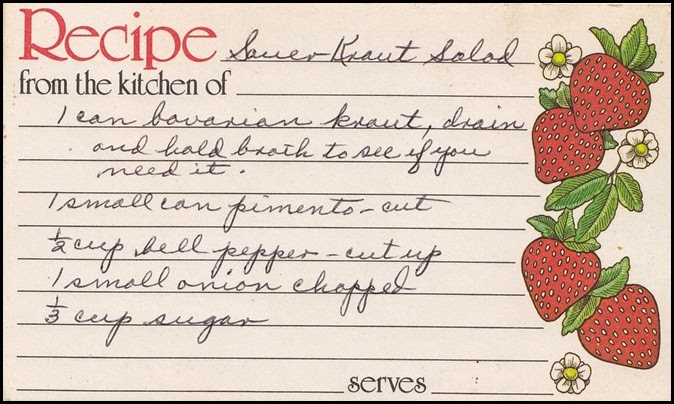 Recipe Sauer-Kraut Salad
from the kitchen of
1 can bavarian kraut, drain
and hold broth to see if you
need it.
1 small can pimento-cut
½ cup bell pepper-cut up
1 small onion chopped
⅓ cup sugar
serves